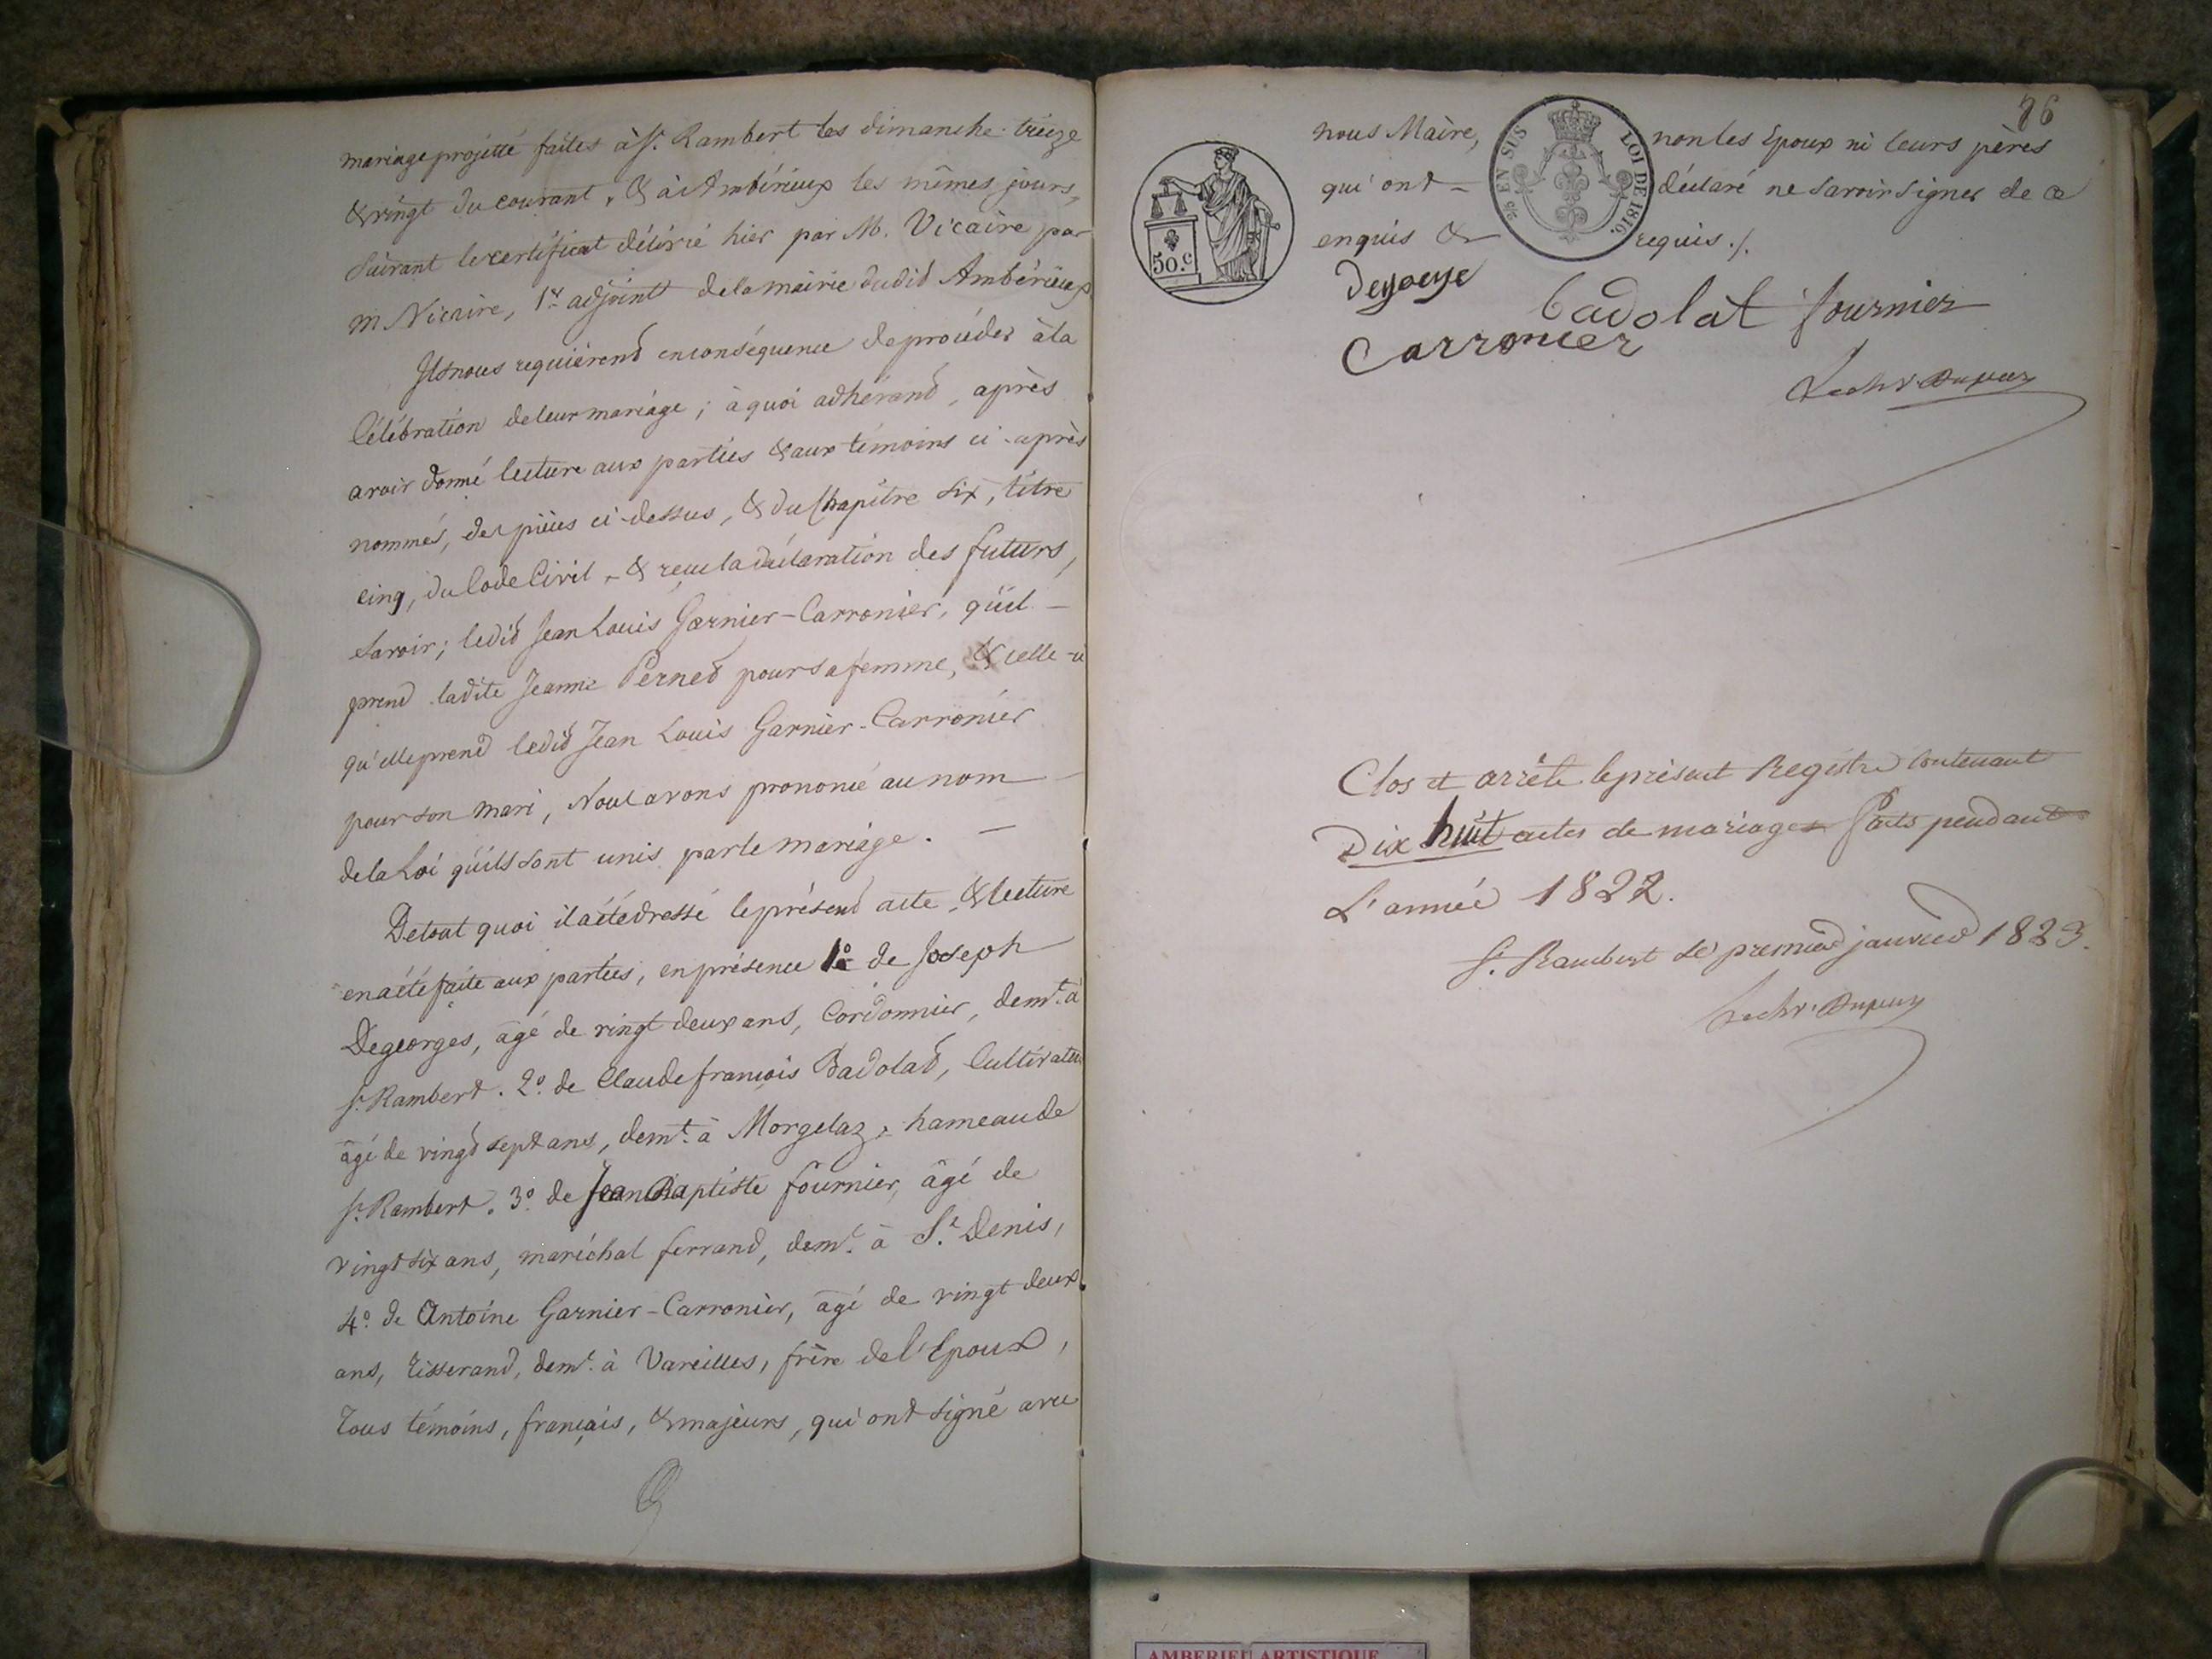 mariage projetté faites à St. Rambert les dimanche treize
& vingt du courant, & à Ambérieux les mêmes jours,
suivant le certificat délivré hier par M. Vicaire par
M. Vicaire, 1er adjoint de la mairie dudit Ambérieux
Ils nous requièrent en conséquence de procéder à la
Célébration de leur mariage ; à quoi adhérant, après
avoir donné lecture aux parties & aux témoins ci-après
nommés, des pièces ci-dessus, & du Chapitre six, titre
cinq, du Code Civil, & reçu la déclaration des futurs,
savoir ; ledit Jean Louis Garnier-Carronier, qu'il
prend ladite Jeanne Pernet pour sa femme, & celle-ci
qu'elle prend ledit Jean Louis Garnier-Carronier
pour son mari, Nous avons prononcé au nom
de la Loi qu'ils sont unis par le mariage.
De tout quoi il a été dressé le présent acte, & lecture
en a été faite aux parties, en présence 1° de Joseph
Degeorges, âgé de vingt deux ans, Cordonnier, demt. à
St. Rambert. 2° de Claude françois Badolat, Cultivateur
âgé de vingt sept ans, demt. à Morgelaz, hameau de
St. Rambert. 3° de Jean Baptiste fournier, âgé de
vingt six ans, maréchal ferrand, demt. à St. Denis,
4° de Antoine Garnier-Carronier, âgé de vingt deux
ans, Tisserand, demt. à Vareilles, frère de l'Epoux,
Tous témoins, français, & majeurs, qui ont signé avec
76
nous Maire, non les Epoux ni leurs pères
qui ont déclaré ne savoir signer de ce
enquis & requis ./.
50.c
EN SUS
LOI DE 1816.
badolat fournier
Carronier
Dupuy
Clos et arrêté le présent Registre contenant
Dix huit actes de mariages faits pendant
L'année 1822.
St. Rambert le premier janvier 1823.
Dupuy
AMBERIEU ARTISTIQUE